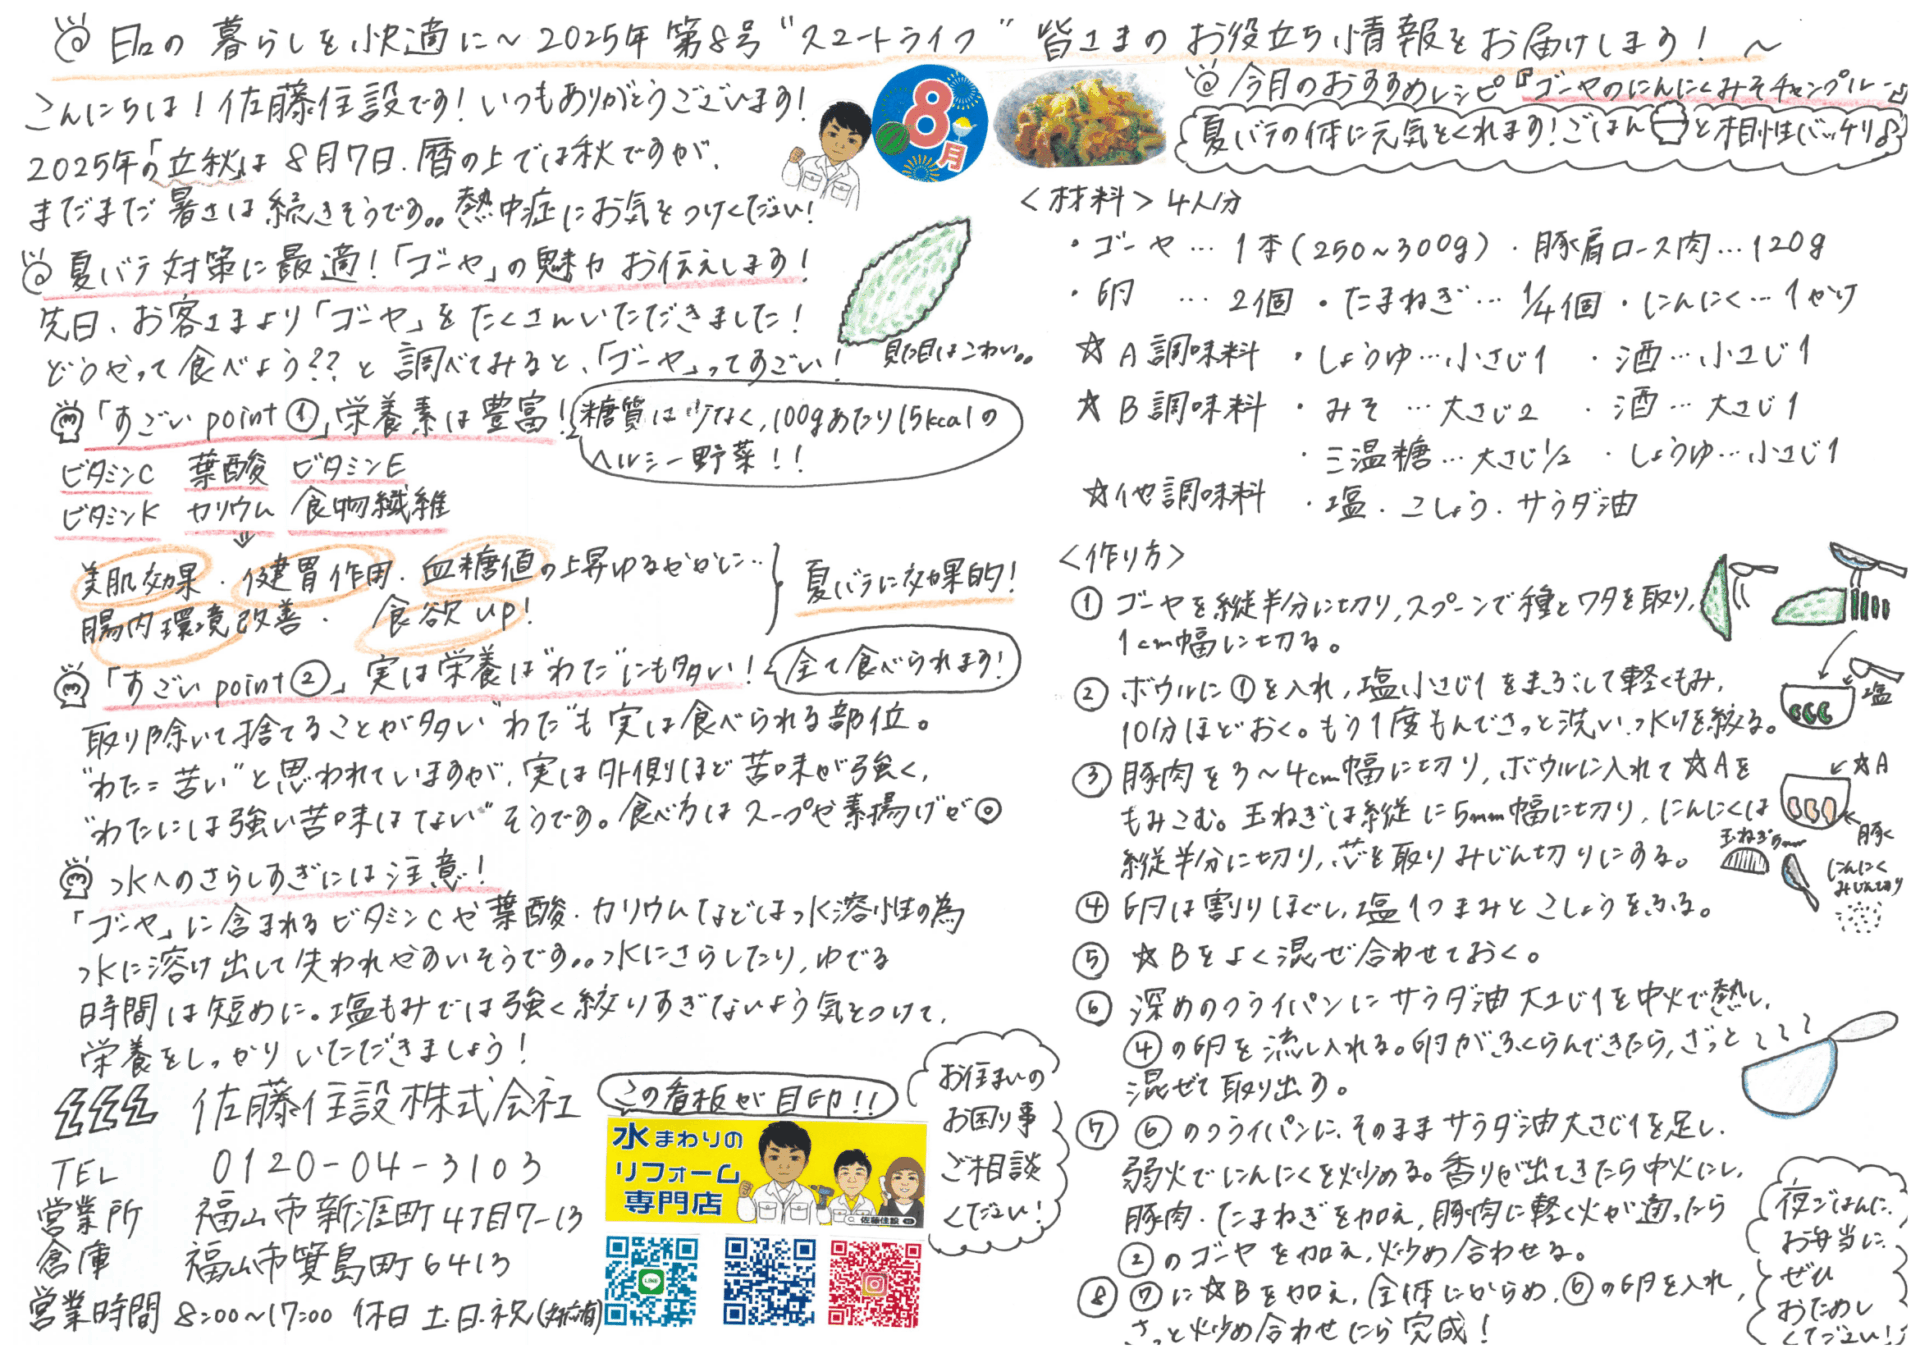 日々の暮らしを快適に～2025年第8号"スマートライフ"皆さまのお役立ち情報をお届けします！～
こんにちは！佐藤住設です！いつもありがとうございます！
2025年の「立秋」は8月7日．暦の上では秋ですが、
まだまだ暑さは続きそうです。。熱中症にお気をつけください！
8月
夏バテ対策に最適！「ゴーヤ」の魅力お伝えします！
先日、お客さまより「ゴーヤ」をたくさんいただきました！
どうやって食べよう??と調べてみると、「ゴーヤ」ってすごい！
見た目はこわい。。
「すごいpoint①」栄養素は豊富！
糖質は少なく，100gあたり15kcalの
ヘルシー野菜！！
ビタミンC 葉酸 ビタミンE
ビタミンK カリウム 食物繊維
美肌効果・健胃作用・血糖値の上昇ゆるやかに…
腸内環境改善・食欲up！
夏バテに効果的！
「すごいpoint②」実は栄養は"わた"にも多い！
全て食べられます！
取り除いて捨てることが多い"わた"も実は食べられる部位。
"わた=苦い"と思われていますが、実は外側ほど苦味が強く、
"わたには強い苦味はない"そうです。食べ方はスープや素揚げが◎
水へのさらしすぎには注意！
「ゴーヤ」に含まれるビタミンCや葉酸・カリウムなどは水溶性の為
水に溶け出して失われやすいそうです。。水にさらしたり，ゆでる
時間は短めに。塩もみでは強く絞りすぎないよう気をつけて、
栄養をしっかりいただきましょう！
佐藤住設株式会社
TEL 0120-04-3103
営業所 福山市新涯町4丁目7-13
倉庫 福山市箕島町6413
営業時間 8:00～17:00 休日 土・日・祝
この看板が目印！！
水まわりの
リフォーム
専門店
佐藤住設
LINE
お住まいの
お困り事
ご相談
ください！
今月のおすすめレシピ『ゴーヤのにんにくみそチャンプルー』
夏バテの体に元気をくれます！ごはんと相性バッチリ
＜材料＞4人分
・ゴーヤ…1本（250～300g）・豚肩ロース肉…120g
・卵…2個・たまねぎ…1/4個・にんにく…1かけ
☆A調味料・しょうゆ…小さじ1・酒…小さじ1
☆B調味料・みそ…大さじ2・酒…大さじ1
・三温糖…大さじ1/2・しょうゆ…小さじ1
☆他調味料・塩・こしょう・サラダ油
＜作り方＞
①ゴーヤを縦半分に切り，スプーンで種とワタを取り，
1cm幅に切る。
②ボウルに①を入れ，塩小さじ1をまぶして軽くもみ，
10分ほどおく。もう1度もんでさっと洗い、水けを絞る。
塩
③豚肉を3～4cm幅に切り，ボウルに入れて☆Aを
もみこむ。玉ねぎは縦に5mm幅に切り，にんにくは
縦半分に切り，芯を取りみじん切りにする。
☆A
豚く
玉ねぎ5mm
にんにく
みじん切り
④卵は割りほぐし，塩1つまみとこしょうをふる。
⑤☆Bをよく混ぜ合わせておく。
⑥深めのフライパンにサラダ油大さじ1を中火で熱し，
④の卵を流し入れる。卵がふくらんできたら，ざっと
混ぜて取り出す。
⑦⑥のフライパンに、そのままサラダ油大さじ1を足し，
弱火でにんにくを炒める。香りが出てきたら中火にし，
豚肉・たまねぎを加え，豚肉に軽く火が通ったら
②のゴーヤを加え，炒め合わせる。
⑧⑦に☆Bを加え，全体にからめ，⑥の卵を入れ，
さっと炒め合わせたら完成！
夜ごはんに、
お弁当に、
ぜひ
おためし
ください！